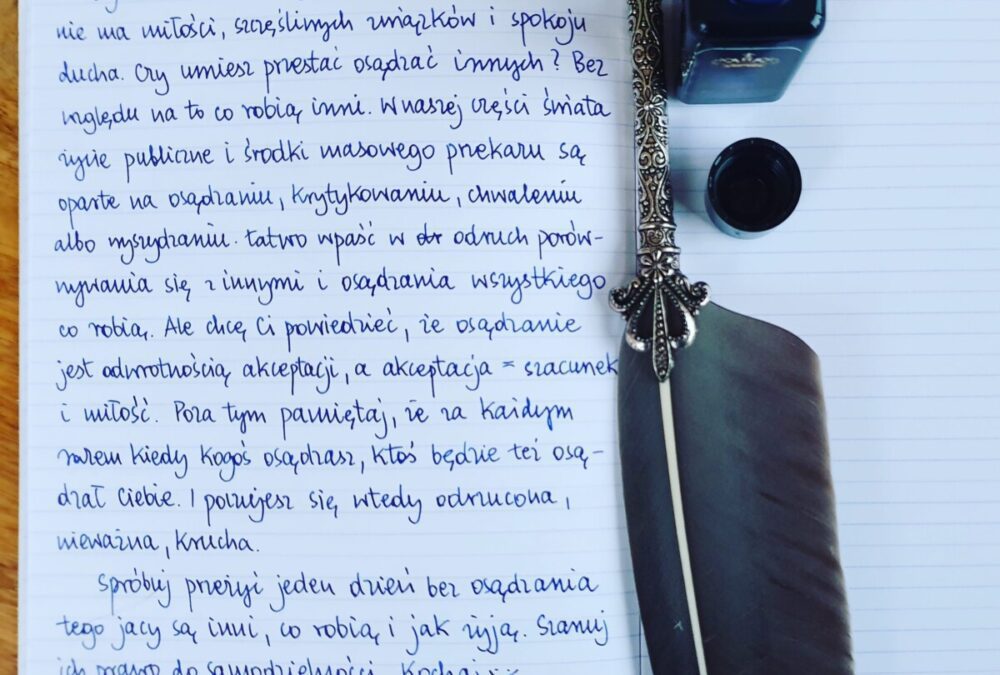 nie ma miłości, szczęśliwych związków i spokoju
ducha. Czy umiesz przestać osądzać innych? Bez
względu na to co robią inni. W naszej części świata
życie publiczne i środki masowego przekazu są
oparte na osądzaniu, krytykowaniu, chwaleniu
albo wyszydzaniu. Łatwo wpaść w odruch porów-
nywania się z innymi i osądzania wszystkiego
co robią. Ale chcę Ci powiedzieć, że osądzanie
jest odwrotnością akceptacji, a akceptacja = szacunek
i miłość. Poza tym pamiętaj, że za każdym
razem kiedy kogoś osądzasz, ktoś będzie też osą-
dzał Ciebie. I poczujesz się wtedy odrzucona,
nieważna, krucha.
Spróbuj przeżyć jeden dzień bez osądzania
tego jacy są inni, co robią i jak żyją. Szanuj
ich prawo do samodzielności. Kochaj